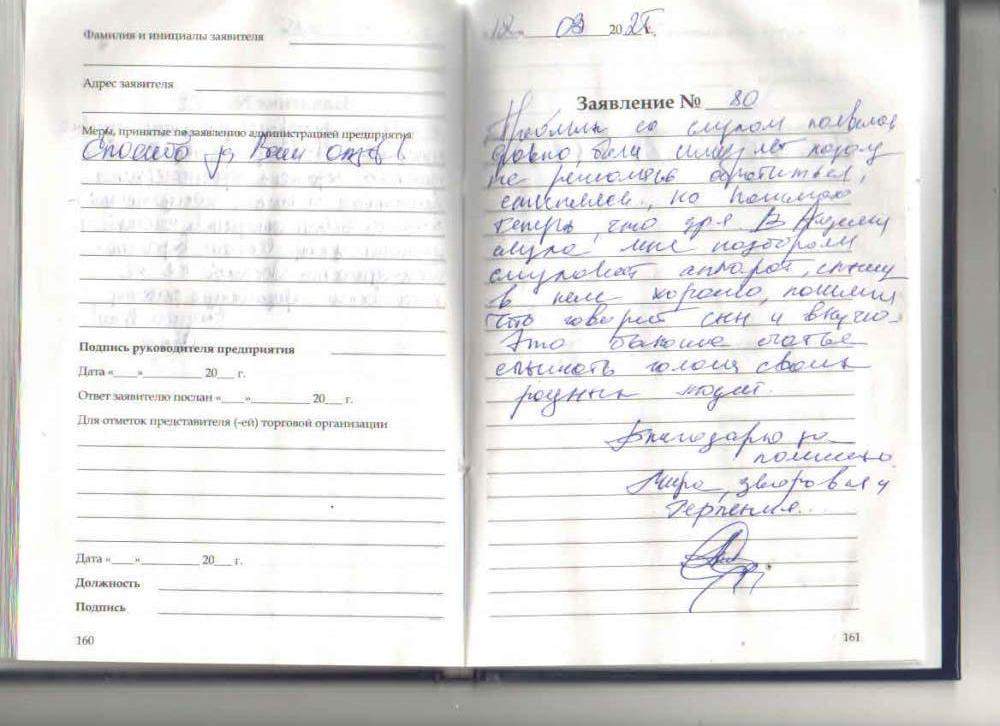 Фамилия и инициалы заявителя
Адрес заявителя
Меры, принятые по заявлению администрацией предприятия
Спасибо за Ваш отзыв
Подпись руководителя предприятия
Дата «___»__________ 20___ г.
Ответ заявителю послан «___»__________ 20___ г.
Для отметок представителя (-ей) торговой организации
Дата «___»__________ 20___ г.
Должность
Подпись
160
«18» 03 20 г.
Заявление № 80
Проблемы со слухом появились
давно, были лет назад
не решалась обратиться,
стеснялась, но понимаю
теперь, что зря. В Академии
слуха мне подобрали
слуховой аппарат, слышу
в нем хорошо, понимаю
что говорит сын и внучка.
Это большое счастье
слышать голоса своих
родных людей.
Благодарю за
помощь.
Мира, здоровья и
терпения.
161